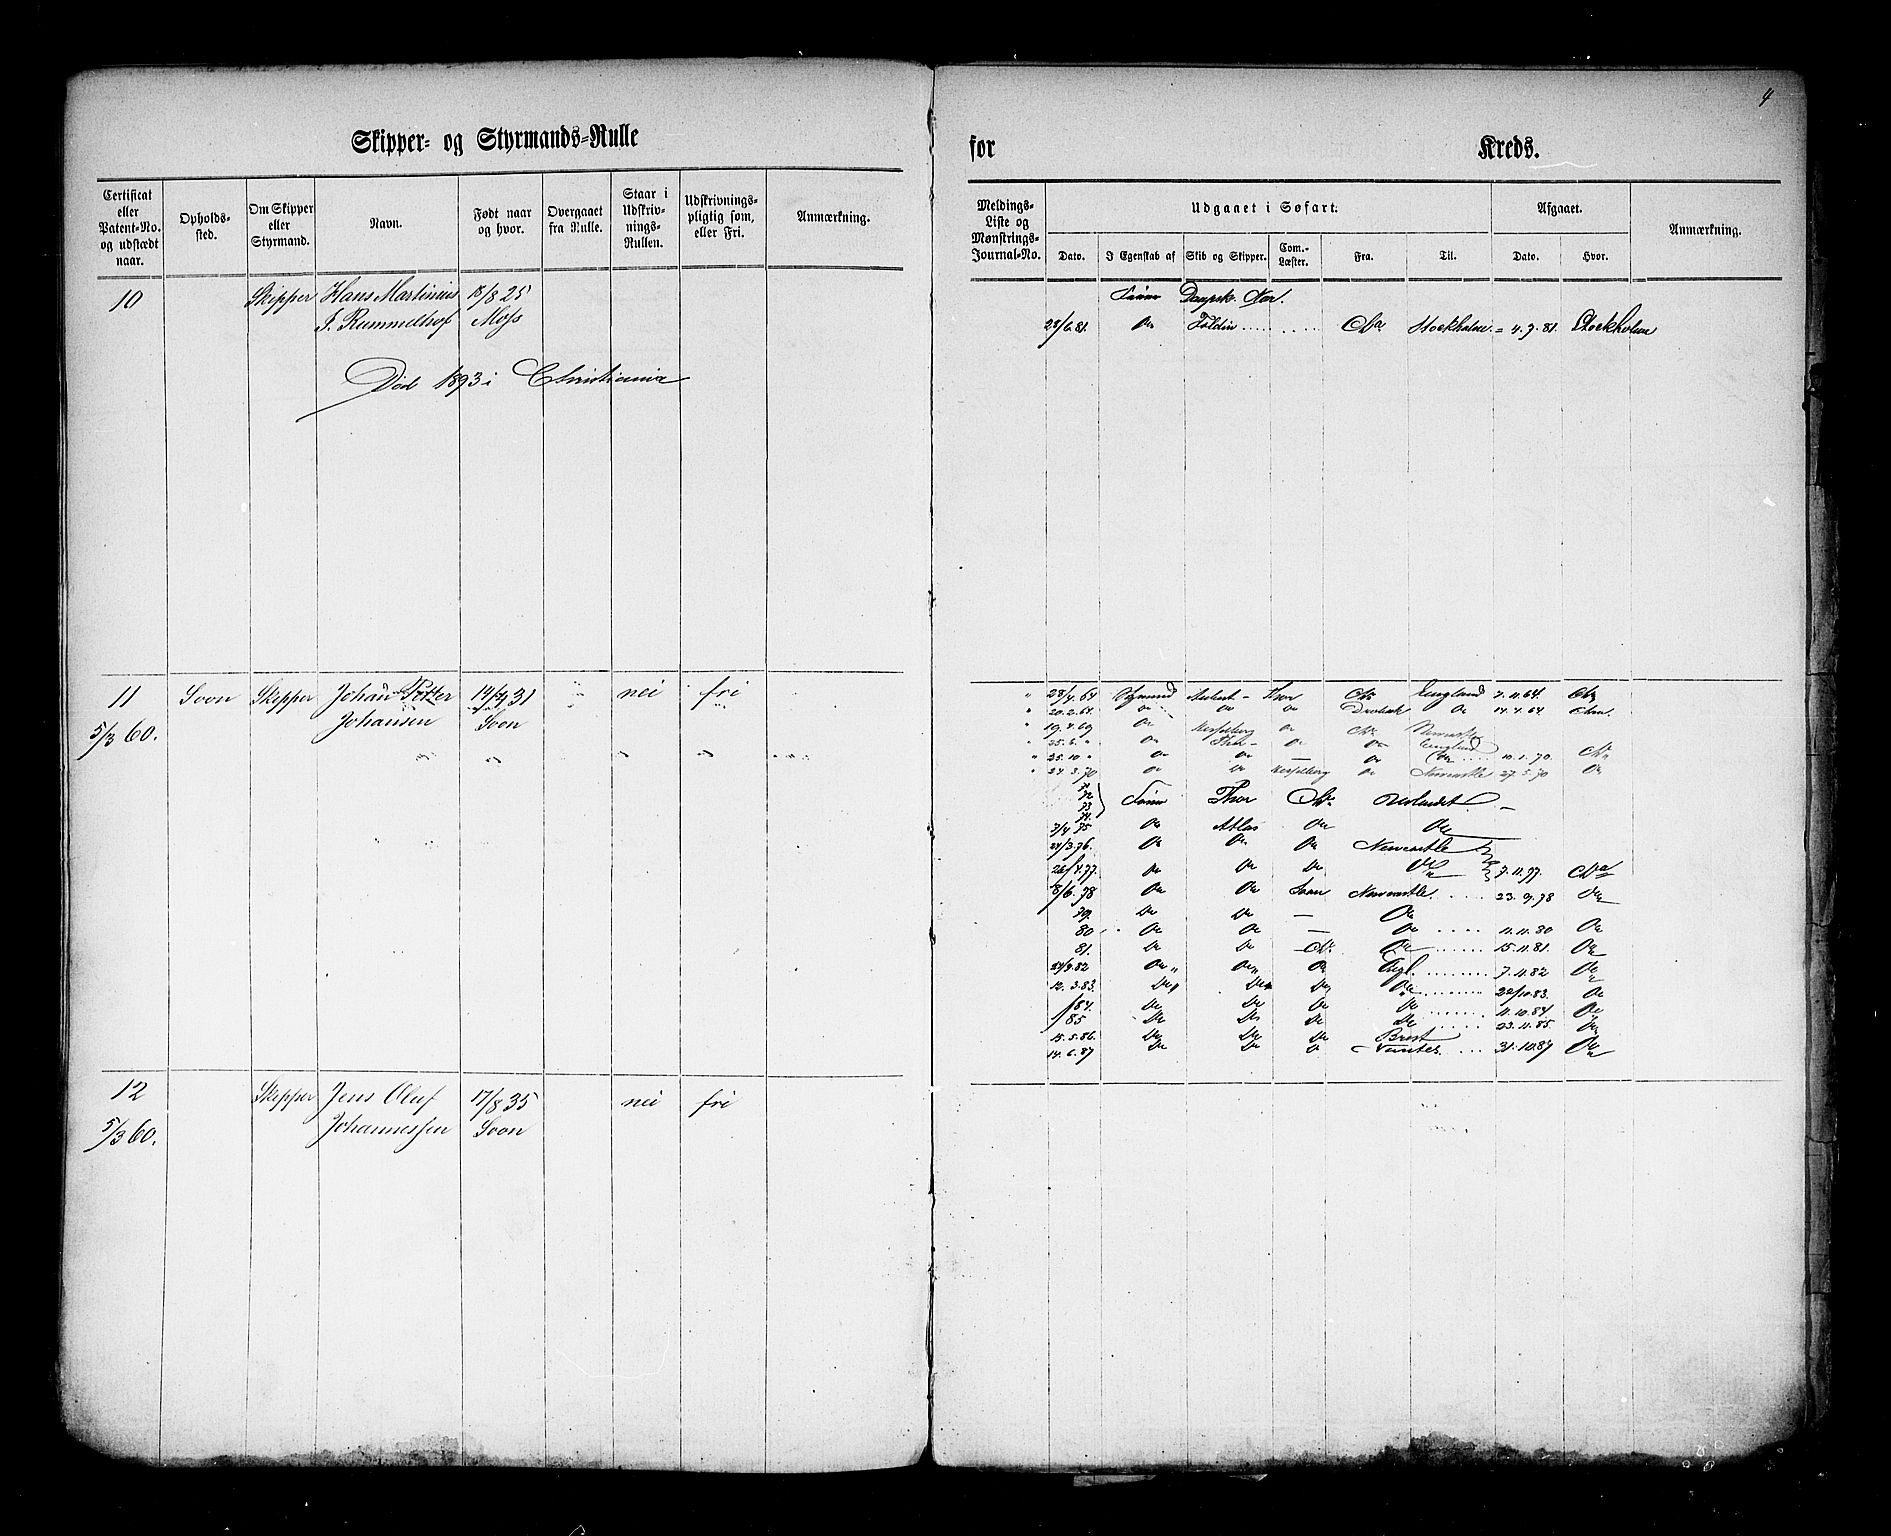 4
Skipper- og Styrmands-Rulle
for Kreds.
Certificat eller Patent-No. og udstædt naar.
Opholds-sted.
Om Skipper eller Styrmand.
Navn.
Født naar og hvor.
Overgaaet fra Rulle.
Staar i Udskriv-nings-Rullen.
Udskrivnings-pligtig som, eller Fri.
Anmærkning.
Meldings-Liste og Mønstrings-Journal-No.
Udgaaet i Søfart.
Dato.
I Egenskab af
Skib og Skipper.
Com.-Læster.
Fra.
Til.
Afgaaet.
Dato.
Hvor.
Anmærkning.
10 Skipper Hans Martinius 18/8 25
F. Rummelhof Moss
Død 1893 i Christiania
Fører Dampsk. Nor.
28/6 81 Do Foldin Cha Stockholm = 4.7.81. Stockholm
11 Soon Skipper Johan Petter 19/9 31 nei fri
5/3 60. Johansen Soon
" 28/4.64 Thor England 7.11.64.
" 20.2.64 Do Do Do Drøbak Do 14.4.64
" 19.4.69 Do Do Newcastle
" 25.6. " Do Thor - Do Do England
" 25.10 " Do Do — Do Do 10.1.70.
" 24.3.70 Do Do Do Newcastle 27.5.70 Do
72
73
74.
Fører Thor
7/4 75 Do Atlas Do Do
24/3.76. Do Do Do Newcastle
26/4.77. Do Do Do Do
8/6.78 Do Do Soon Newcastle. 23.9.78 Do
79. Do Do — Do
80 Do Do — Do 11.11.80 Do
81. Do Do Do 15.11.81. Do
82 Do " Do " Do Engl. 7.11.82 Do
12.3.83. Do Do Do Do 22/10.83. Do
/84. Do Do Do Do 11.10.84 Do
/85 Do Do Do Do 23.11.85 Do
15.5.86. Do Do Do Brest
14.6.87 Do Do Do 31.10.87 Do
12 Skipper Jens Oluf 17/8 35 nei fri
5/3 60. Johannessen Soon